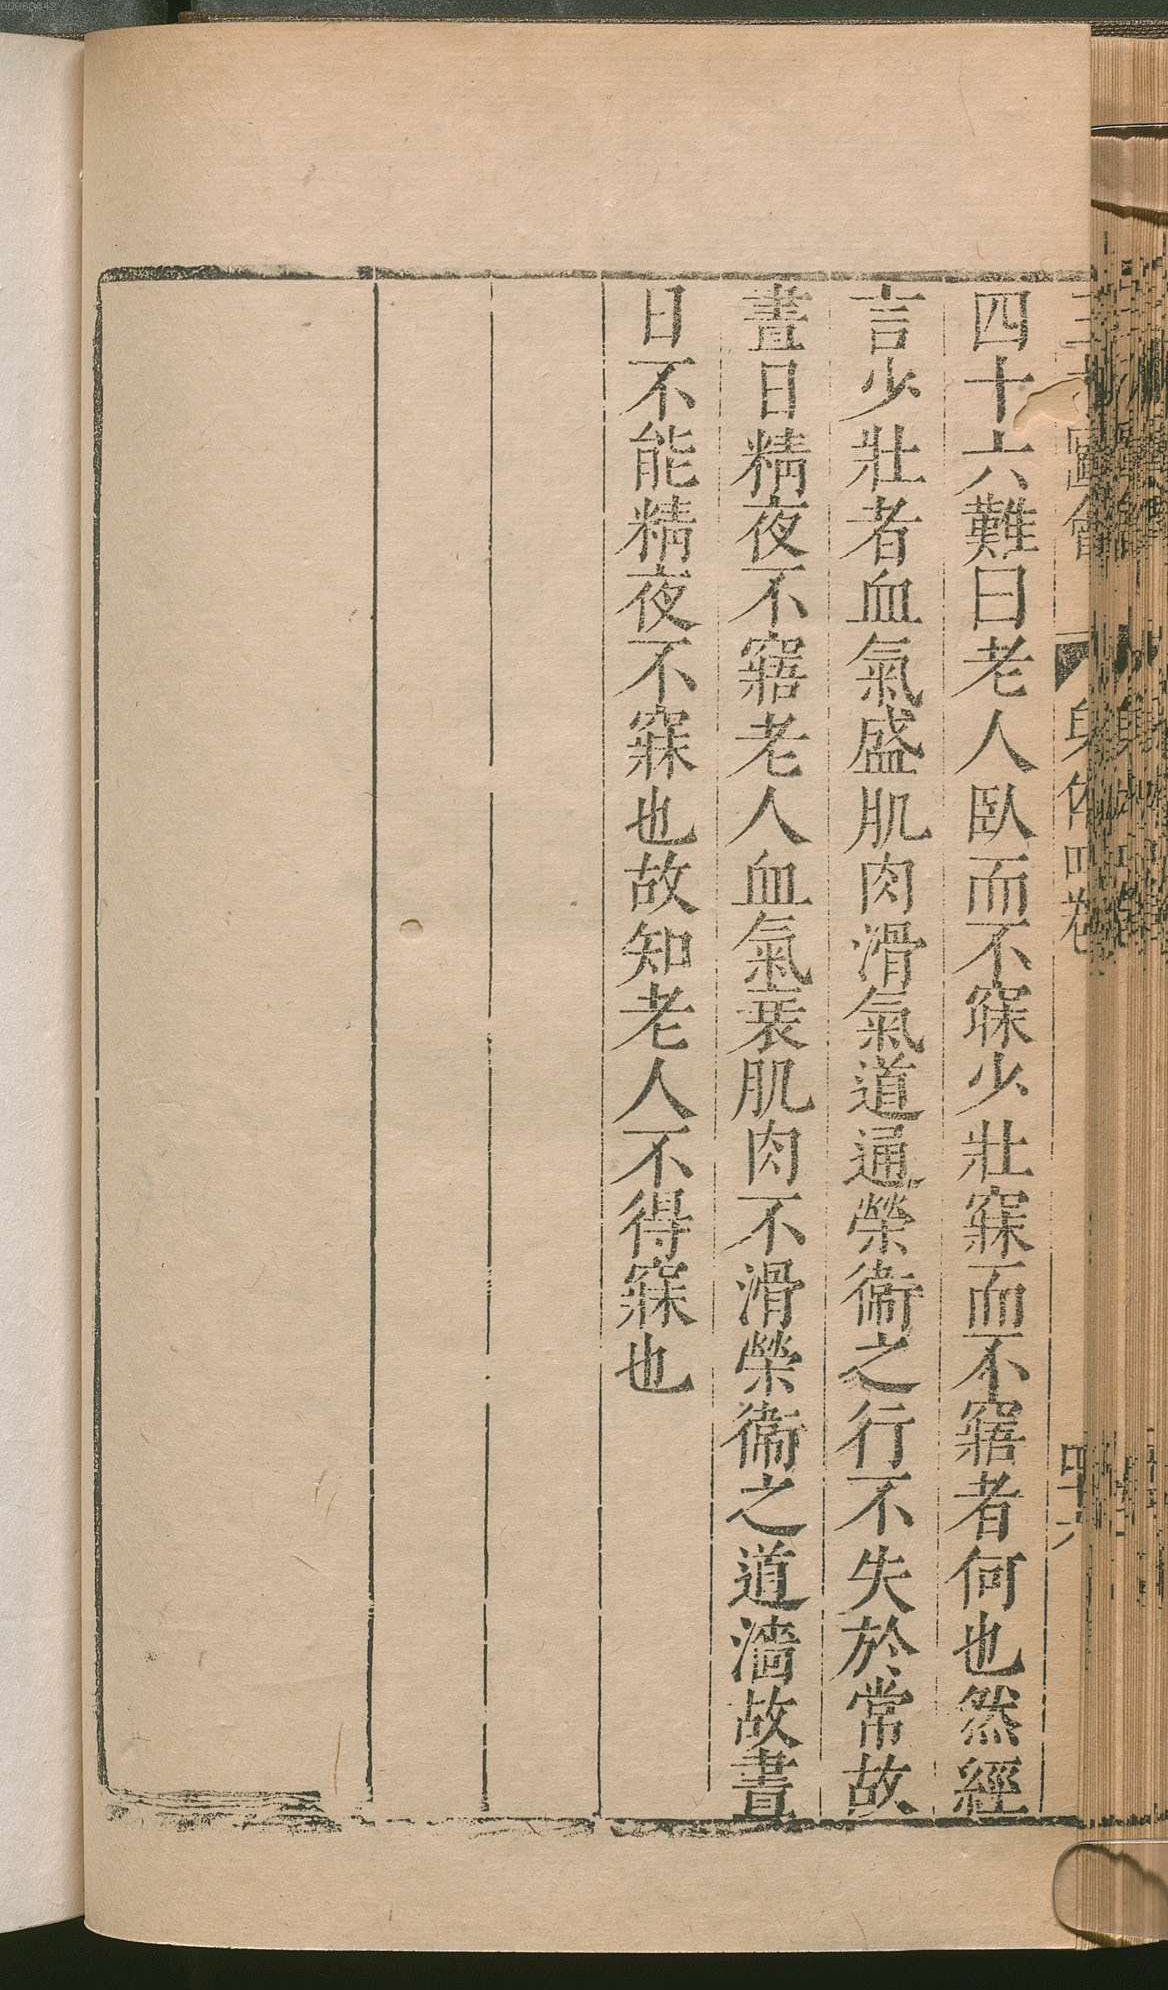 四十六難曰老人臥而不寐少壯寐而不寤者何也然經
言少壯者血氣盛肌肉滑氣道通榮衞之行不失於常故
晝日精夜不寤老人血氣衰肌肉不滑榮衞之道濇故晝
日不能精夜不寐也故知老人不得寐也